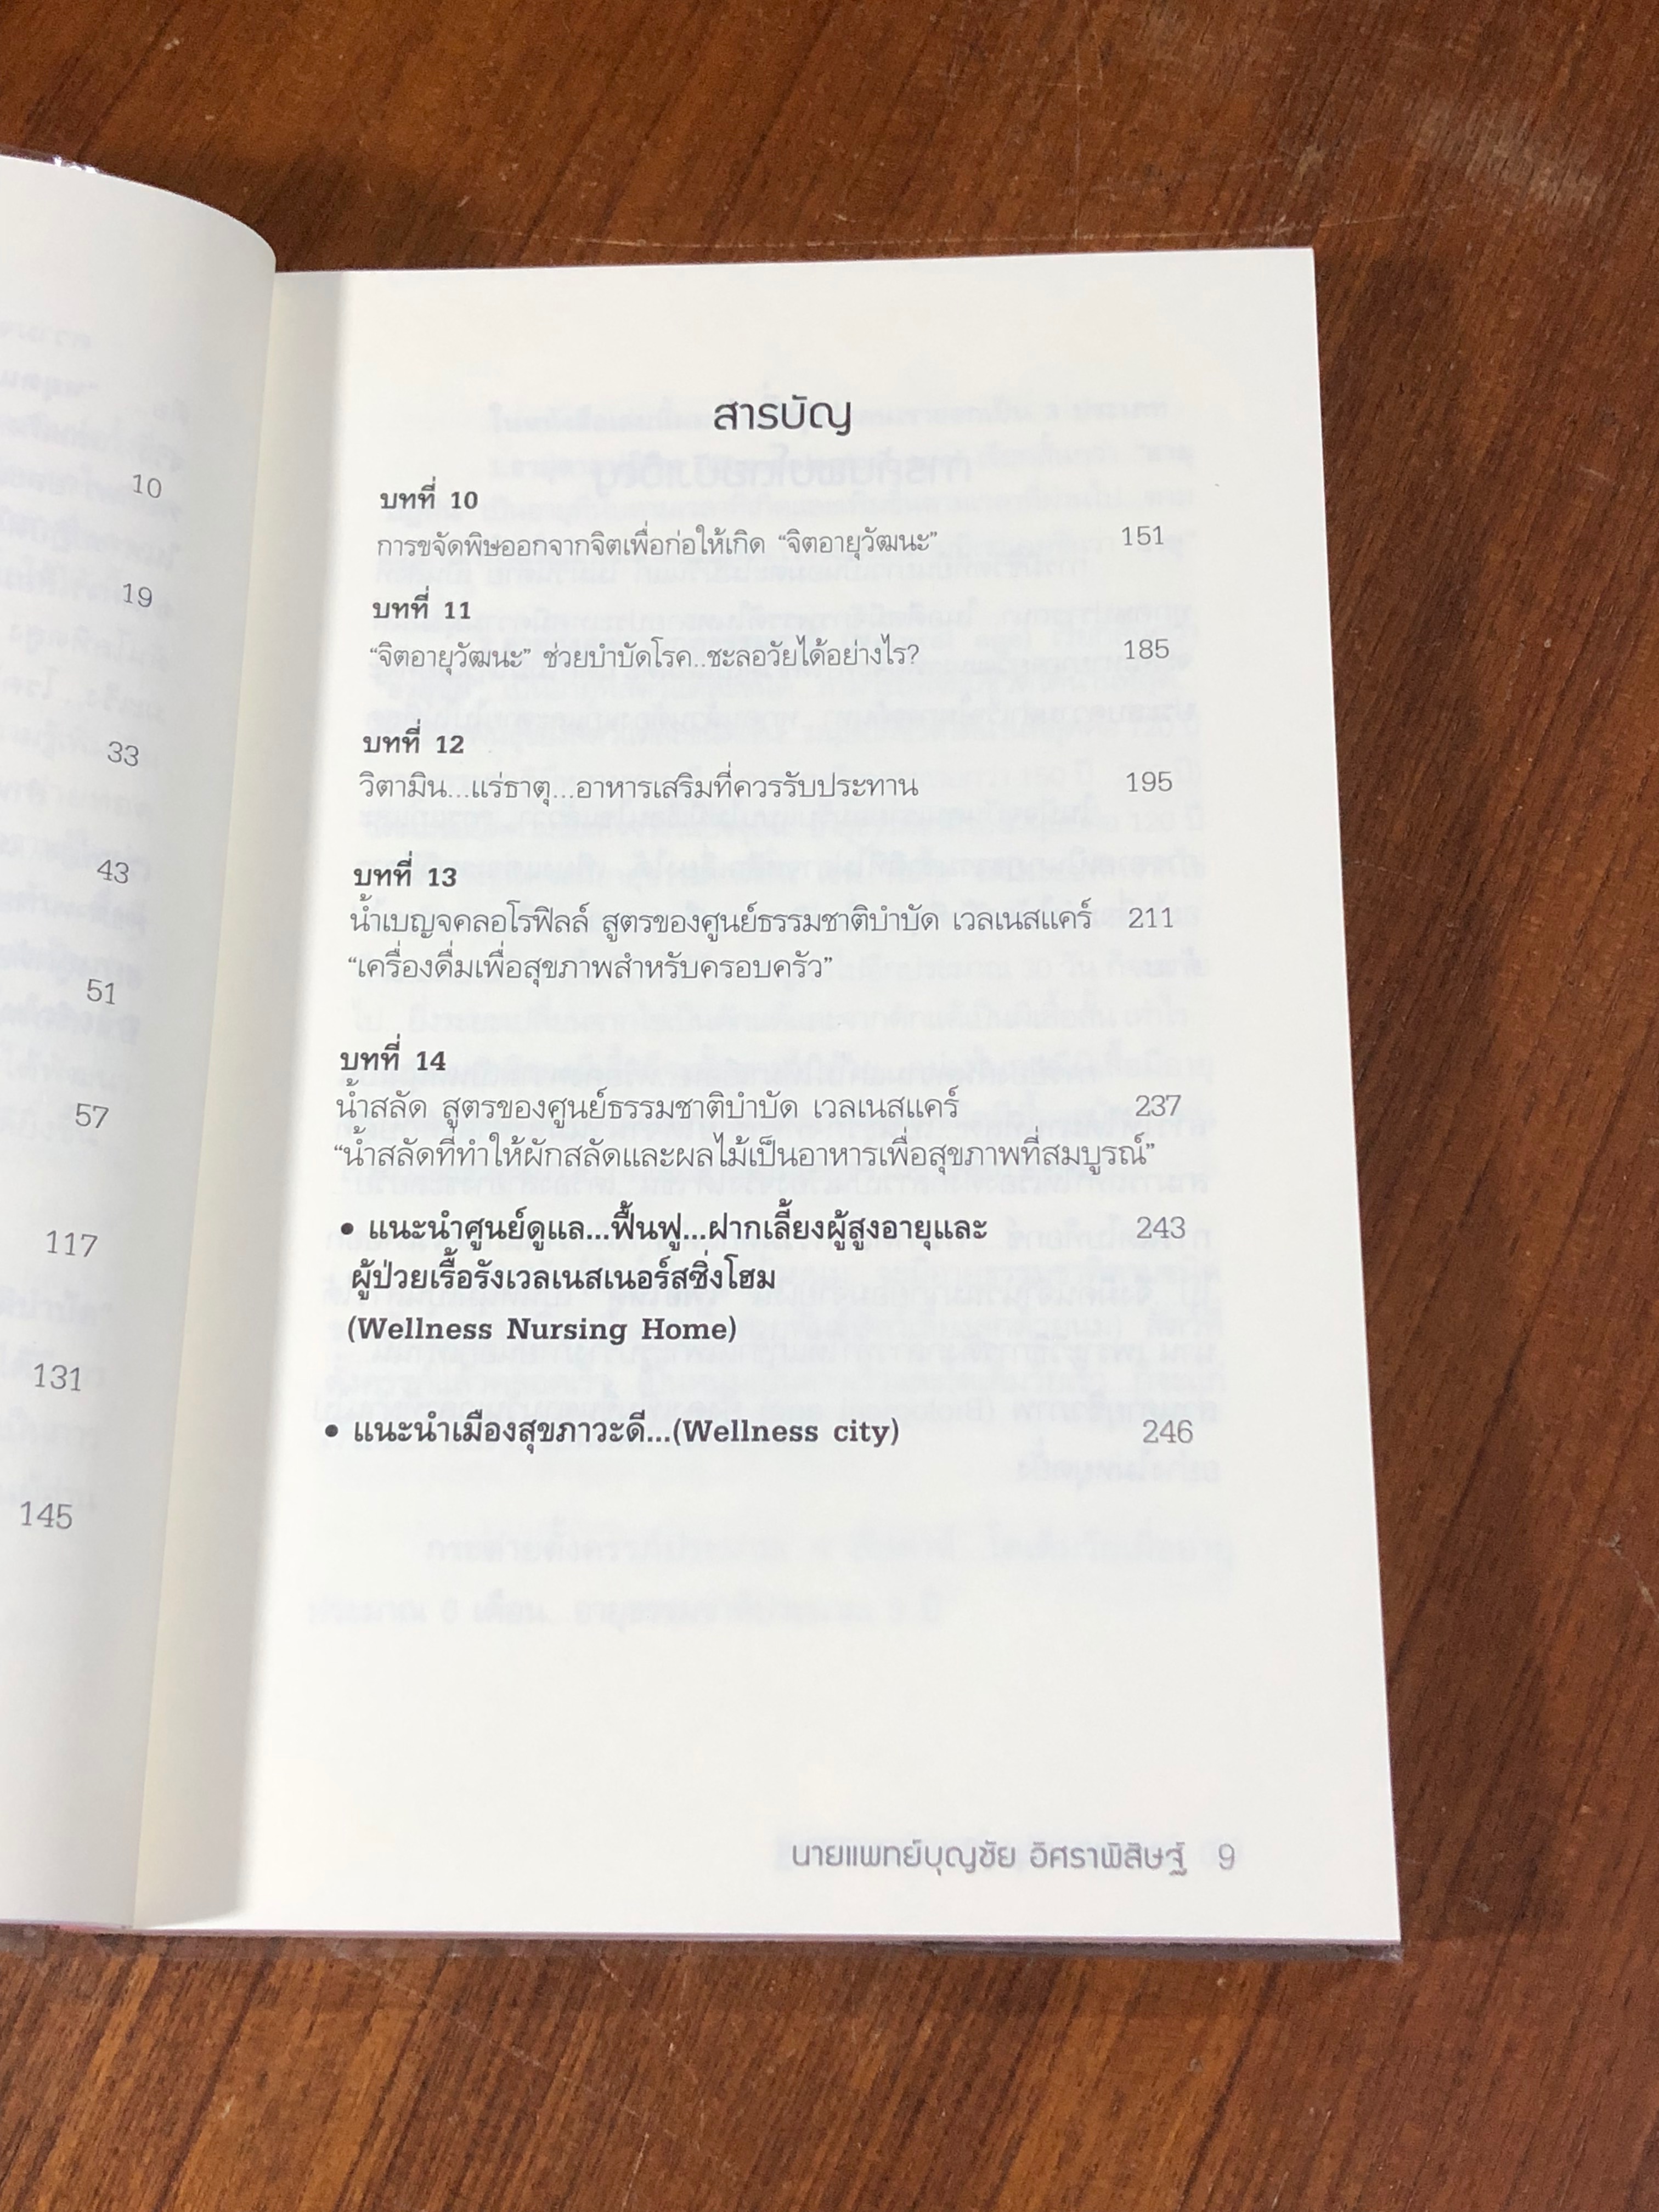 10
19
33
43
51
57
117
131
145
สารบัญ
บทที่ 10
การขจัดพิษออกจากจิตเพื่อก่อให้เกิด “จิตอายุวัฒนะ” 151
บทที่ 11
“จิตอายุวัฒนะ” ช่วยบำบัดโรค..ชะลอวัยได้อย่างไร? 185
บทที่ 12
วิตามิน...แร่ธาตุ...อาหารเสริมที่ควรรับประทาน 195
บทที่ 13
น้ำเบญจคลอโรฟิลล์ สูตรของศูนย์ธรรมชาติบำบัด เวลเนสแคร์ 211
“เครื่องดื่มเพื่อสุขภาพสำหรับครอบครัว”
บทที่ 14
น้ำสลัด สูตรของศูนย์ธรรมชาติบำบัด เวลเนสแคร์ 237
“น้ำสลัดที่ทำให้ผักสลัดและผลไม้เป็นอาหารเพื่อสุขภาพที่สมบูรณ์”
• แนะนำศูนย์ดูแล...ฟื้นฟู...ฝากเลี้ยงผู้สูงอายุและ 243
ผู้ป่วยเรื้อรังเวลเนสเนอร์สซิ่งโฮม
(Wellness Nursing Home)
• แนะนำเมืองสุขภาวะดี...(Wellness city) 246
นายแพทย์บุญชัย อิศราพิสิษฐ์ 9